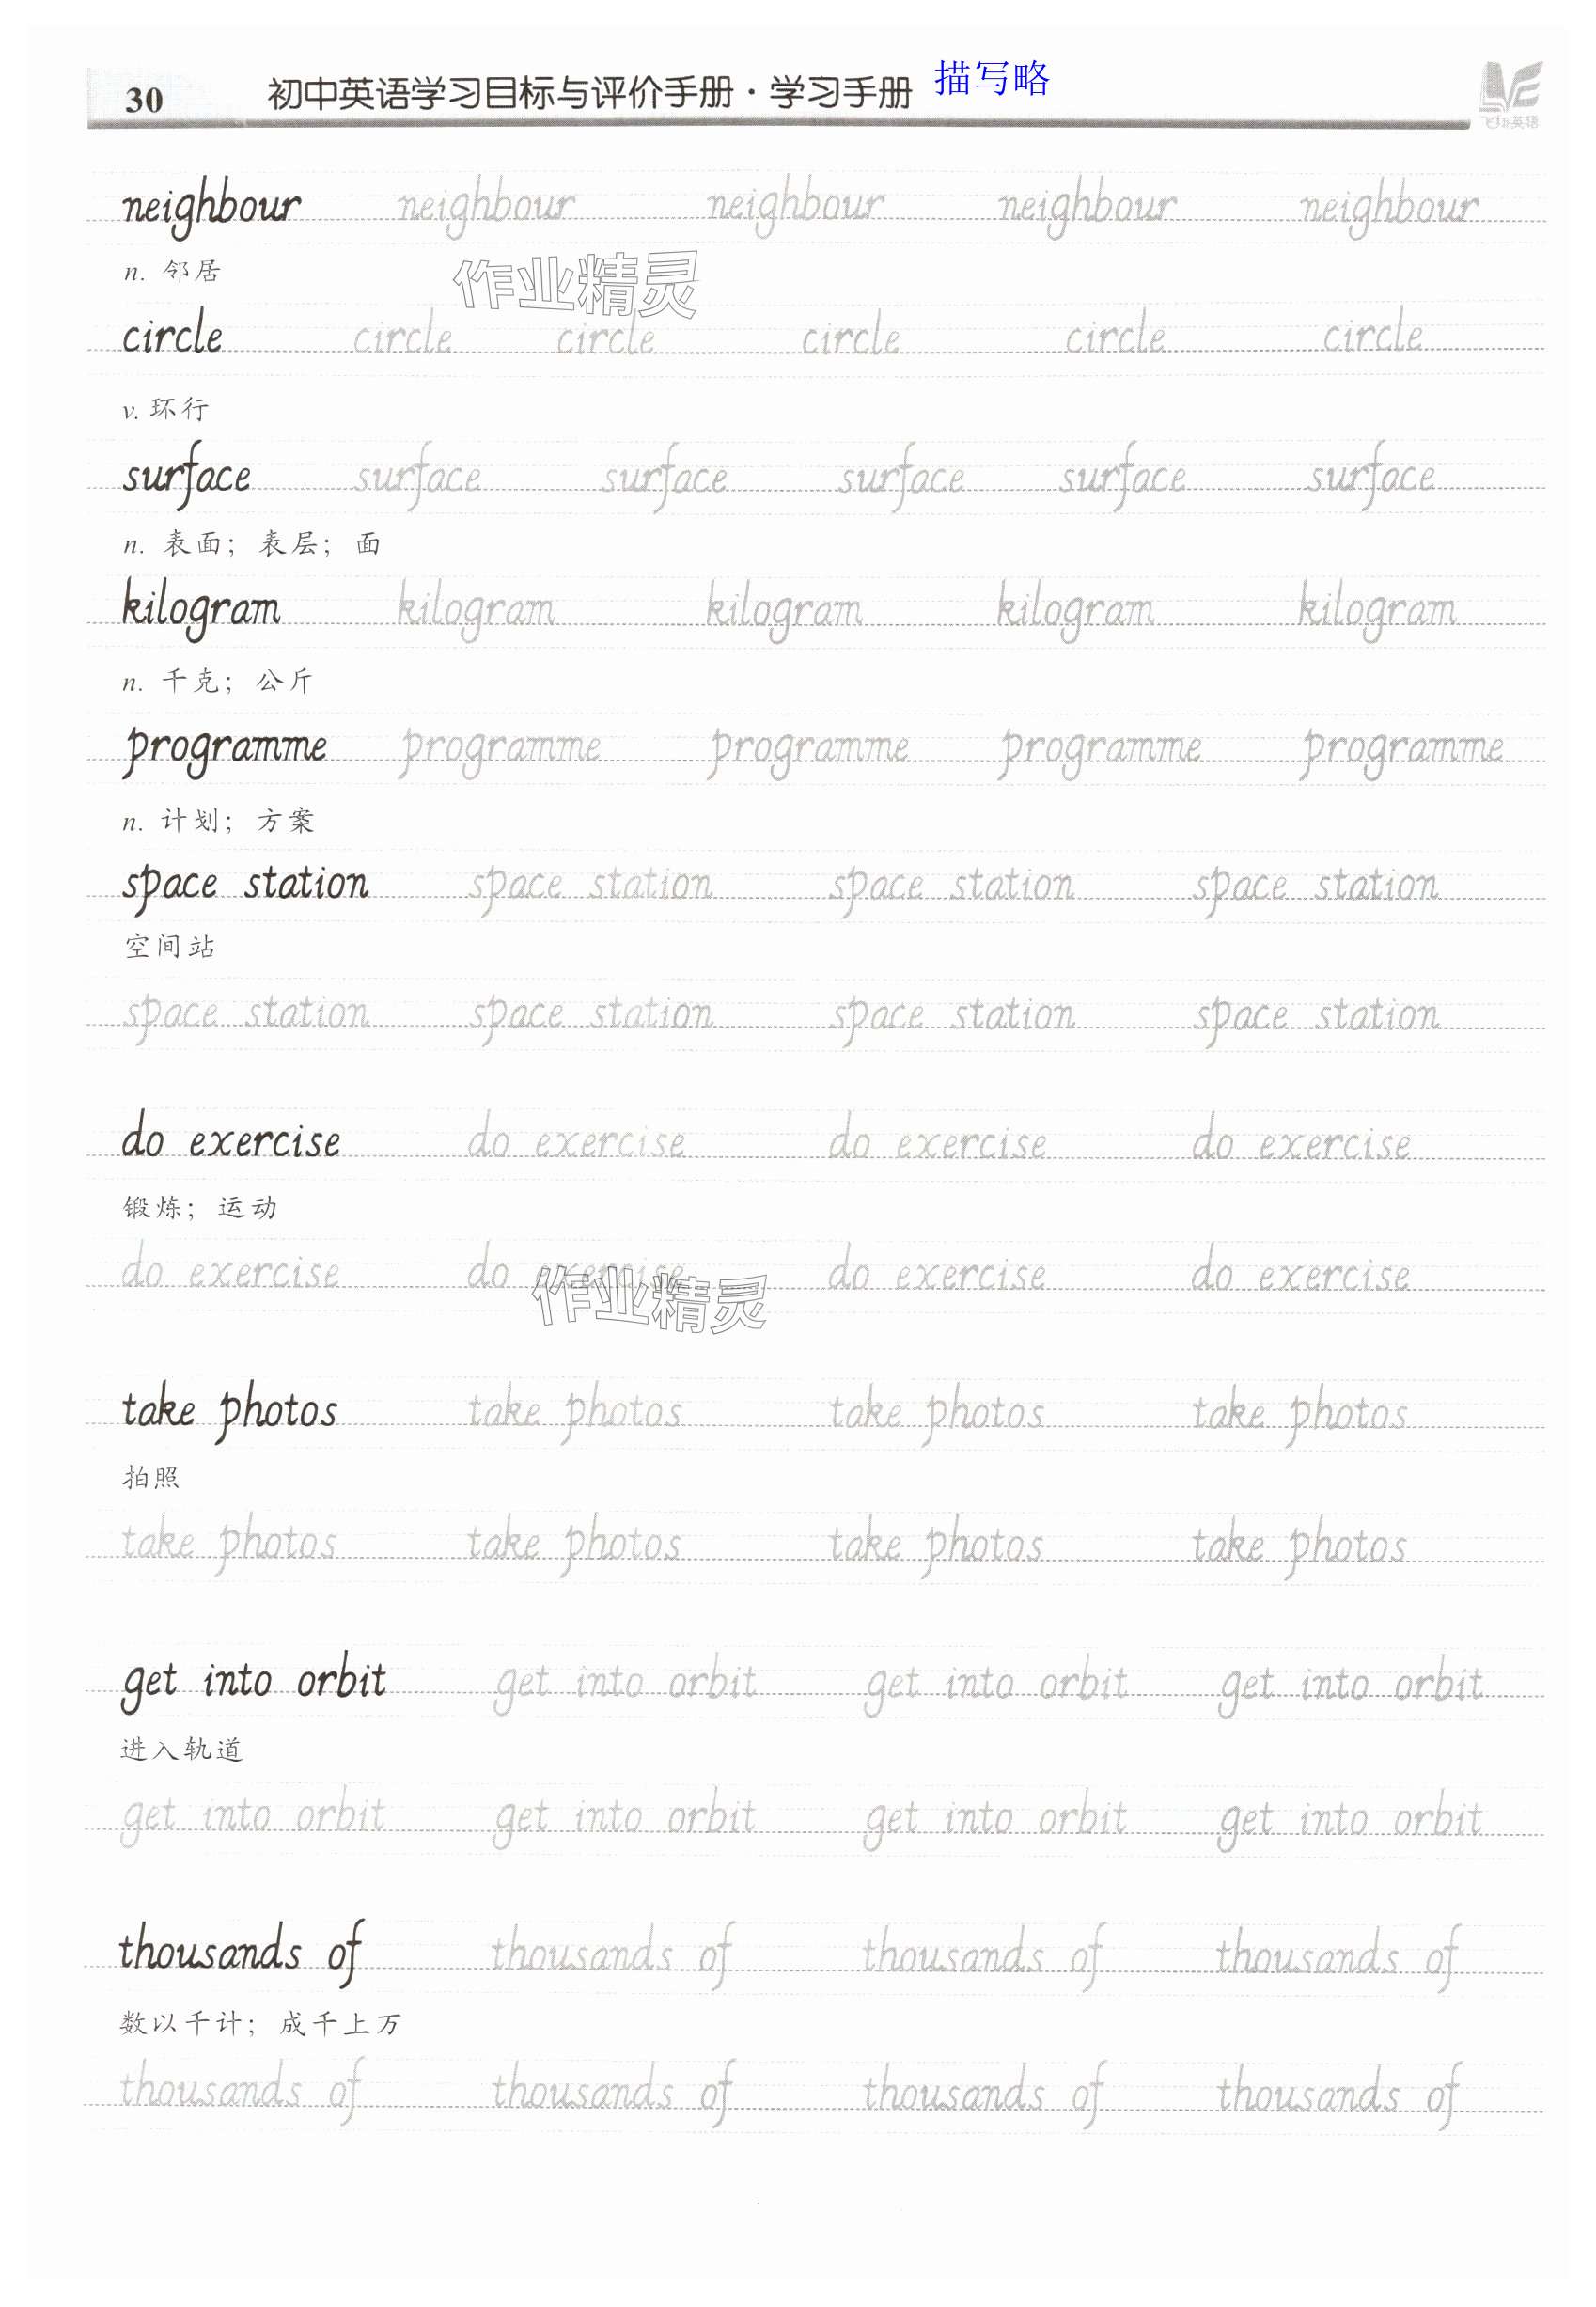 30 初中英语学习目标与评价手册·学习手册 描写略
飞机英语
neighbour neighbour neighbour neighbour neighbour
n. 邻居
作业精灵
circle circle circle circle circle circle
v. 环行
surface surface surface surface surface surface
n. 表面；表层；面
kilogram kilogram kilogram kilogram kilogram
n. 千克；公斤
programme programme programme programme programme
n. 计划；方案
space station space station space station space station
空间站
space station space station space station space station
do exercise do exercise do exercise do exercise
锻炼；运动
do exercise do exercise do exercise do exercise
作业精灵
take photos take photos take photos take photos
拍照
take photos take photos take photos take photos
get into orbit get into orbit get into orbit get into orbit
进入轨道
get into orbit get into orbit get into orbit get into orbit
thousands of thousands of thousands of thousands of
数以千计；成千上万
thousands of thousands of thousands of thousands of